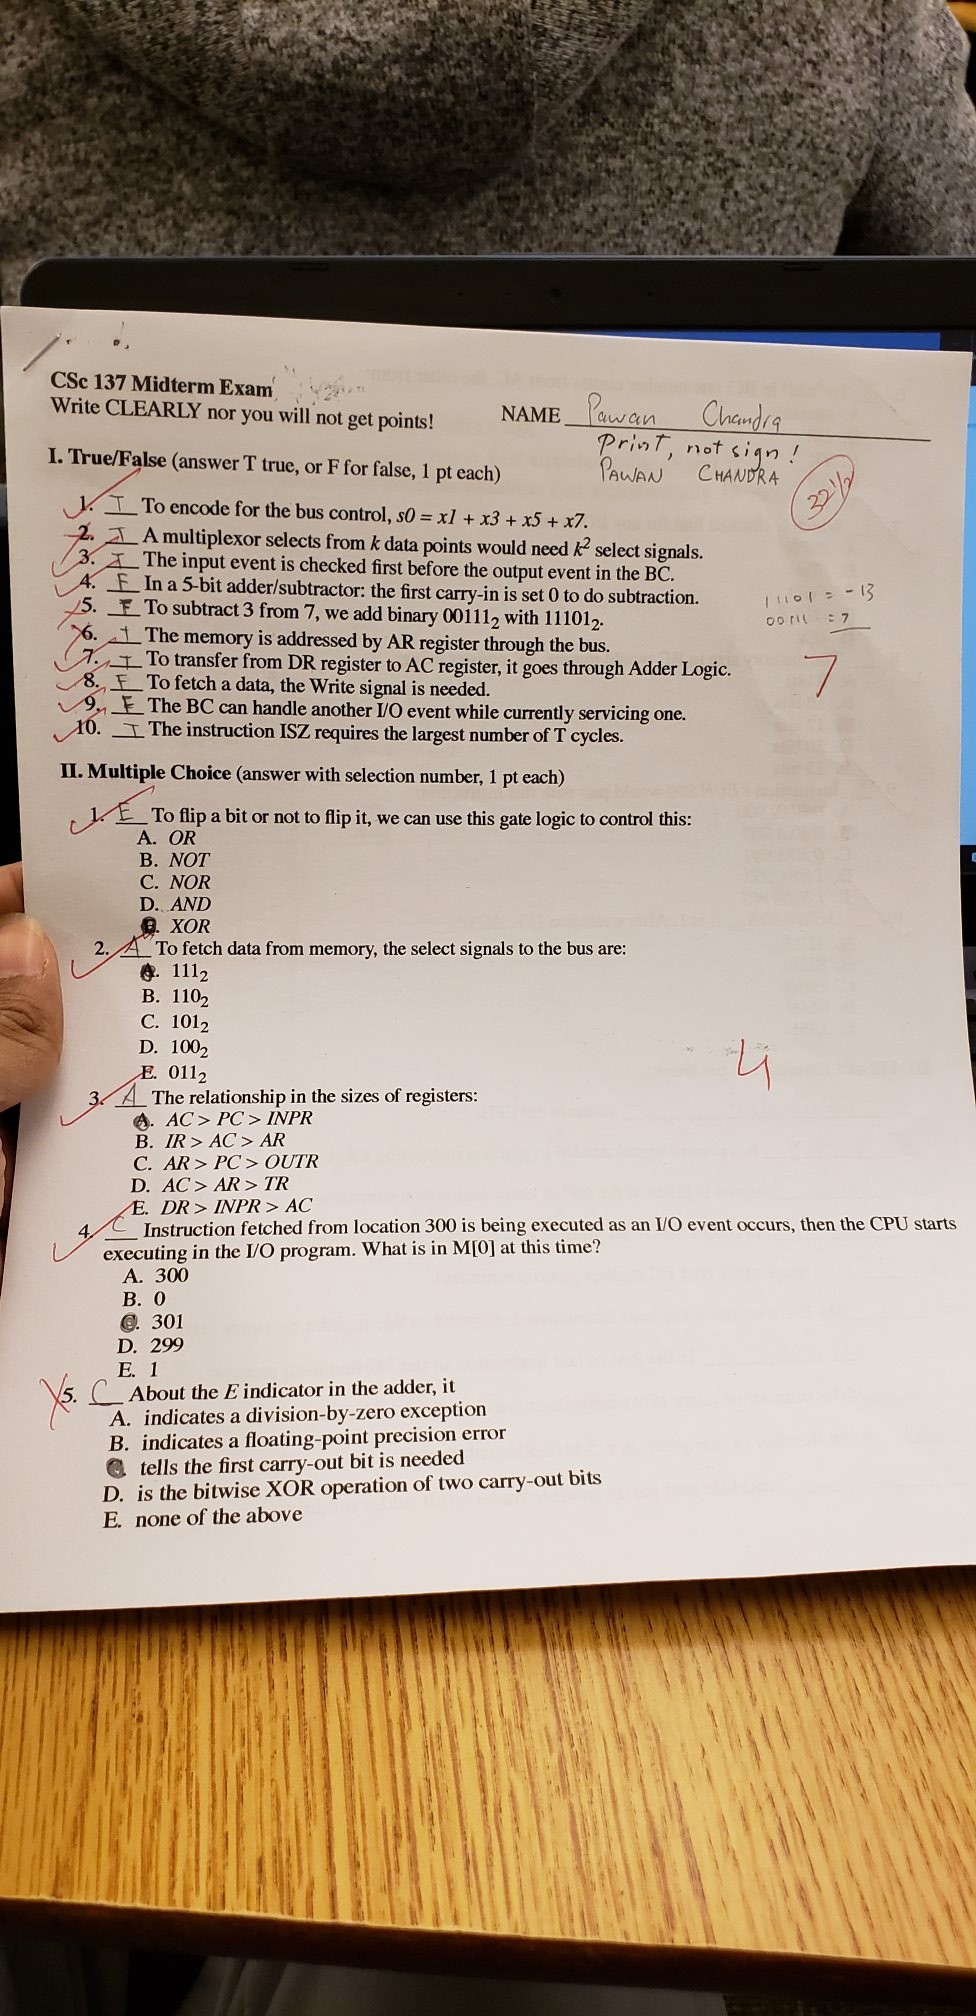 CSc 137 Midterm Exam
Write CLEARLY nor you will not get points!
NAME Pawan Chandra
Print, not sign!
PAWAN CHANDRA
22 1/2
I. True/False (answer T true, or F for false, 1 pt each)
1. T To encode for the bus control, s0 = x1 + x3 + x5 + x7.
2. T A multiplexor selects from k data points would need k² select signals.
3. T The input event is checked first before the output event in the BC.
4. F In a 5-bit adder/subtractor: the first carry-in is set 0 to do subtraction.
5. F To subtract 3 from 7, we add binary 00111₂ with 11101₂.
6. T The memory is addressed by AR register through the bus.
7. T To transfer from DR register to AC register, it goes through Adder Logic.
8. F To fetch a data, the Write signal is needed.
9. F The BC can handle another I/O event while currently servicing one.
10. T The instruction ISZ requires the largest number of T cycles.
11101 = -13
00111 = 7
7
II. Multiple Choice (answer with selection number, 1 pt each)
1. E To flip a bit or not to flip it, we can use this gate logic to control this:
A. OR
B. NOT
C. NOR
D. AND
E. XOR
2. A To fetch data from memory, the select signals to the bus are:
A. 111₂
B. 110₂
C. 101₂
D. 100₂
E. 011₂
4
3. A The relationship in the sizes of registers:
A. AC > PC > INPR
B. IR > AC > AR
C. AR > PC > OUTR
D. AC > AR > TR
E. DR > INPR > AC
4. C Instruction fetched from location 300 is being executed as an I/O event occurs, then the CPU starts
executing in the I/O program. What is in M[0] at this time?
A. 300
B. 0
C. 301
D. 299
E. 1
5. C About the E indicator in the adder, it
A. indicates a division-by-zero exception
B. indicates a floating-point precision error
C. tells the first carry-out bit is needed
D. is the bitwise XOR operation of two carry-out bits
E. none of the above